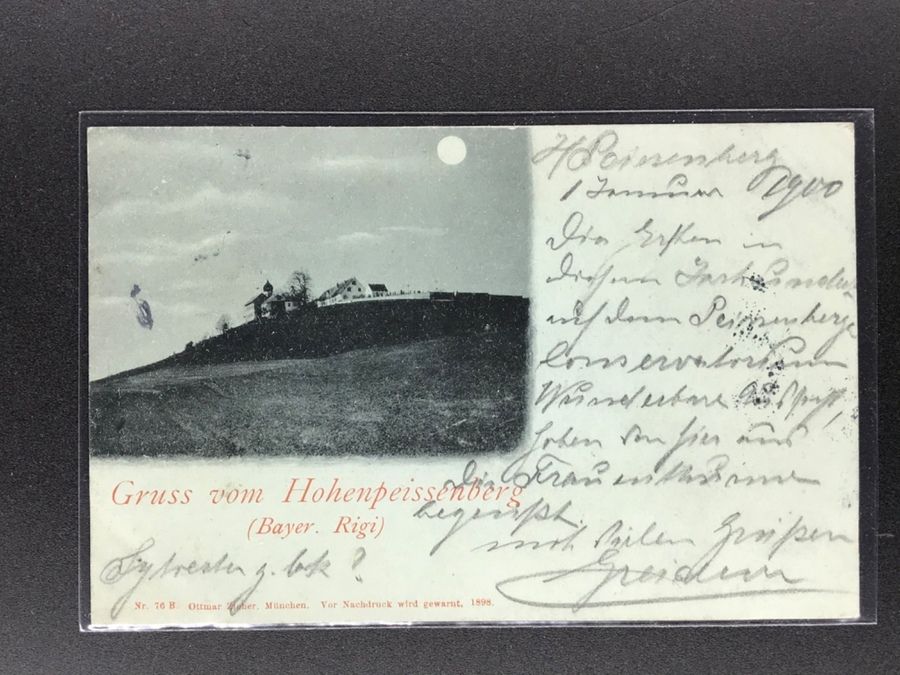 H Peissenberg
1 Januar 1900
Die Ersten in
diesem Jahrhundert
auf dem Peissenberge
Conservatorium
Wunderbare Aussicht,
haben von hier aus
die Frauenthürme
begrüßt.
mit vielen Grüßen
Gruss vom Hohenpeissenberg
(Bayer. Rigi)
Sylvester g. ?
Nr. 76 B. Ottmar Zieher, München. Vor Nachdruck wird gewarnt, 1898.